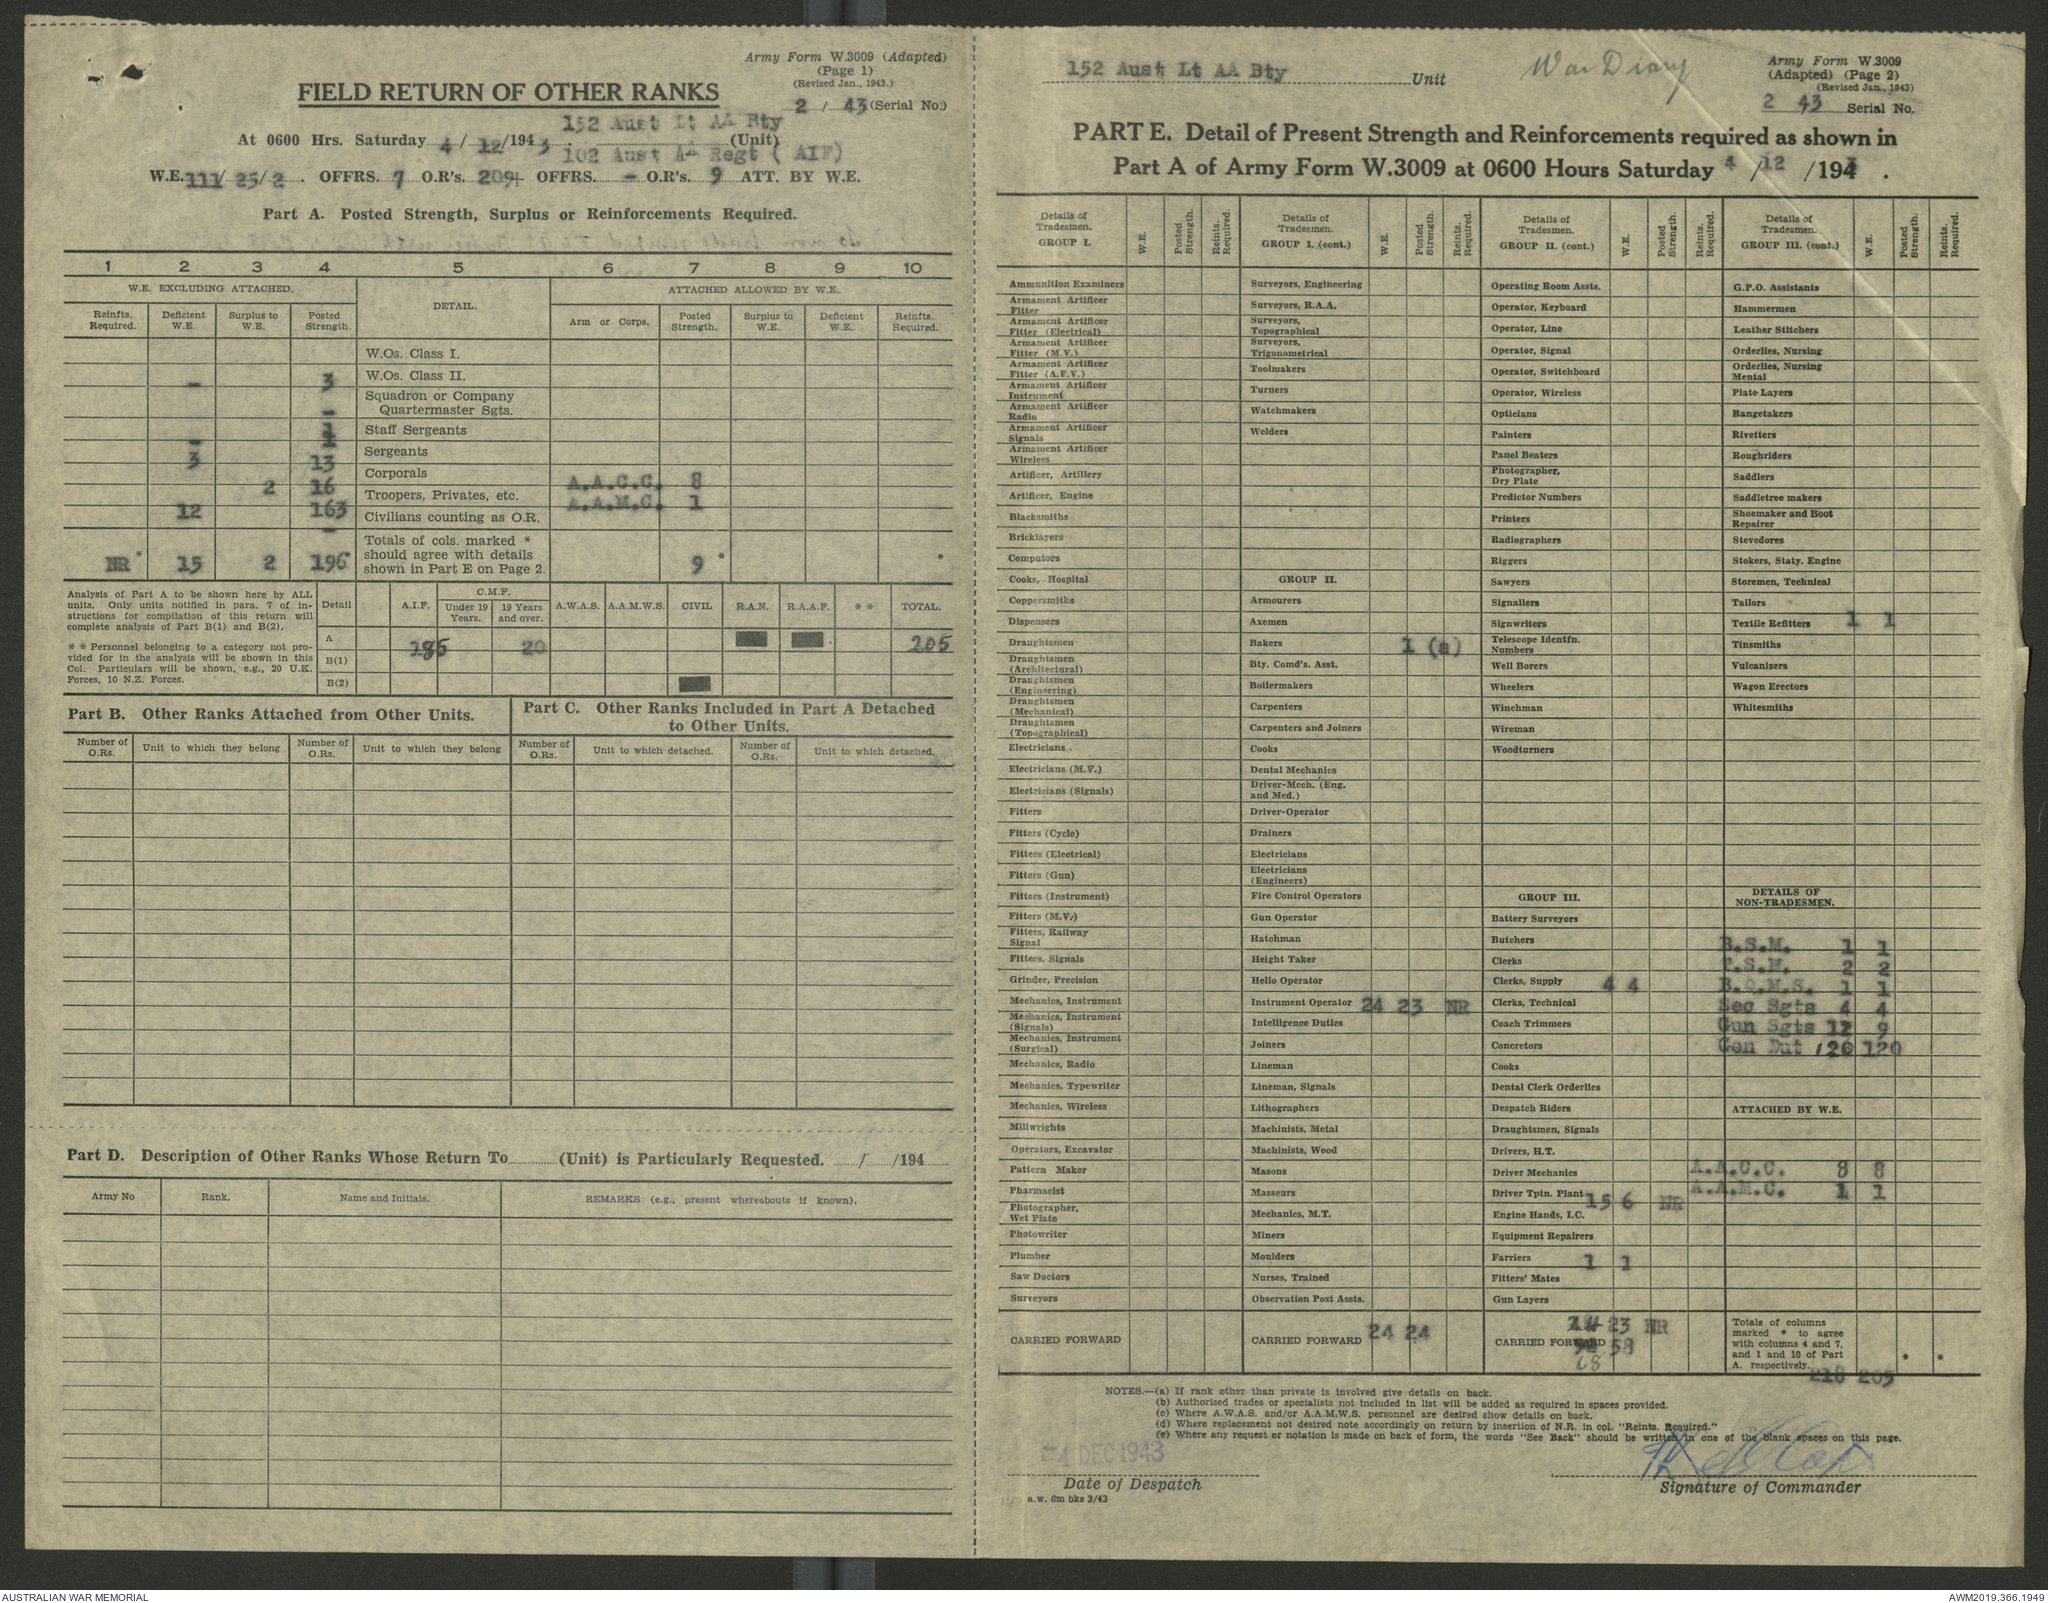 Army Form W.3009 (Adapted)
(Page 1)
(Revised Jan., 1943.)
FIELD RETURN OF OTHER RANKS
2 / 43 (Serial No.)
152 Aust Lt AA Bty
At 0600 Hrs. Saturday 4/ 12/1943. (Unit)
102 Aust AA Regt ( AIF)
W.E. 111/ 25/2 . OFFRS. 7 O.R's. 209+ OFFRS. - O.R's. 9 ATT. BY W.E.
Part A. Posted Strength, Surplus or Reinforcements Required.
1 2 3 4 5 6 7 8 9 10
W.E. EXCLUDING ATTACHED. DETAIL. ATTACHED ALLOWED BY W.E.
Reinfts. Required. Deficient W.E. Surplus to W.E. Posted Strength. Arm or Corps. Posted Strength. Surplus to W.E. Deficient W.E. Reinfts. Required.
W.Os. Class I.
- 3 W.Os. Class II.
Squadron or Company
- Quartermaster Sgts.
- 1 Staff Sergeants
3 13 Sergeants
2 16 Corporals A.A.C.C. 8
12 163 Troopers, Privates, etc. A.A.M.C. 1
- Civilians counting as O.R.
Totals of cols. marked *
should agree with details
shown in Part E on Page 2.
NR * 15 2 196* 9 * *
Analysis of Part A to be shown here by ALL
units. Only units notified in para. 7 of in-
structions for compilation of this return will
complete analysis of Part B(1) and B(2).
* * Personnel belonging to a category not pro-
vided for in the analysis will be shown in this
Col. Particulars will be shown, e.g., 20 U.K.
Forces, 10 N.Z. Forces.
Detail A.I.F. C.M.F. Under 19 Years. 19 Years and over. A.W.A.S. A.A.M.W.S. CIVIL R.A.N. R.A.A.F. * * TOTAL.
A 185 20 205
B(1)
B(2)
Part B. Other Ranks Attached from Other Units.
Part C. Other Ranks Included in Part A Detached
to Other Units.
Number of O.Rs. Unit to which they belong Number of O.Rs. Unit to which they belong Number of O.Rs. Unit to which detached. Number of O.Rs. Unit to which detached.
Part D. Description of Other Ranks Whose Return To............(Unit) is Particularly Requested. ....../....../194......
Army No Rank. Name and Initials. REMARKS (e.g., present whereabouts if known).
152 Aust Lt AA Bty Unit
War Diary
Army Form W.3009
(Adapted) (Page 2)
(Revised Jan., 1943)
2 43 Serial No.
PART E. Detail of Present Strength and Reinforcements required as shown in
Part A of Army Form W.3009 at 0600 Hours Saturday 4 /12 /1943 .
Details of Tradesmen. GROUP I. W.E. Posted Strength. Reints. Required.
Ammunition Examiners
Armament Artificer Fitter
Armament Artificer Fitter (Electrical)
Armament Artificer Fitter (M.V.)
Armament Artificer Fitter (A.F.V.)
Armament Artificer Instrument
Armament Artificer Radio
Armament Artificer Signals
Armament Artificer Wireless
Artificer, Artillery
Artificer, Engine
Blacksmiths
Bricklayers
Computors
Cooks, Hospital
Coppersmiths
Dispensers
Draughtsmen
Draughtsmen (Architectural)
Draughtsmen (Engineering)
Draughtsmen (Mechanical)
Draughtsmen (Topographical)
Electricians
Electricians (M.V.)
Electricians (Signals)
Fitters
Fitters (Cycle)
Fitters (Electrical)
Fitters (Gun)
Fitters (Instrument)
Fitters (M.V.)
Fitters, Railway Signal
Fitters, Signals
Grinder, Precision
Mechanics, Instrument
Mechanics, Instrument (Signals)
Mechanics, Instrument (Surgical)
Mechanics, Radio
Mechanics, Typewriter
Mechanics, Wireless
Millwrights
Operators, Excavator
Pattern Maker
Pharmacist
Photographer, Wet Plate
Photowriter
Plumber
Saw Doctors
Surveyors
CARRIED FORWARD
Details of Tradesmen. GROUP I. (cont.) W.E. Posted Strength. Reints. Required.
Surveyors, Engineering
Surveyors, R.A.A.
Surveyors, Topographical
Surveyors, Trigonometrical
Toolmakers
Turners
Watchmakers
Welders
GROUP II.
Armourers
Axemen
Bakers 1 (a)
Bty. Comd's. Asst.
Boilermakers
Carpenters
Carpenters and Joiners
Cooks
Dental Mechanics
Driver-Mech. (Eng. and Med.)
Driver-Operator
Drainers
Electricians
Electricians (Engineers)
Fire Control Operators
Gun Operator
Hatchman
Height Taker
Helio Operator
Instrument Operator 24 23 NR
Intelligence Duties
Joiners
Lineman
Lineman, Signals
Lithographers
Machinists, Metal
Machinists, Wood
Masons
Masseurs
Mechanics, M.T.
Miners
Moulders
Nurses, Trained
Observation Post Assts.
CARRIED FORWARD 24 24
Details of Tradesmen. GROUP II. (cont.) W.E. Posted Strength. Reints. Required.
Operating Room Assts.
Operator, Keyboard
Operator, Line
Operator, Signal
Operator, Switchboard
Operator, Wireless
Opticians
Painters
Panel Beaters
Photographer, Dry Plate
Predictor Numbers
Printers
Radiographers
Riggers
Sawyers
Signallers
Signwriters
Telescope Identfn. Numbers
Well Borers
Wheelers
Winchman
Wireman
Woodturners
GROUP III.
Battery Surveyors
Butchers
Clerks
Clerks, Supply 4 4
Clerks, Technical
Coach Trimmers
Concretors
Cooks
Dental Clerk Orderlies
Despatch Riders
Draughtsmen, Signals
Drivers, H.T.
Driver Mechanics
Driver Tptn. Plant 15 6 NR
Engine Hands, I.C.
Equipment Repairers
Farriers 1 1
Fitters' Mates
Gun Layers
23 NR
CARRIED FORWARD 58
68
Details of Tradesmen. GROUP III. (cont.) W.E. Posted Strength. Reints. Required.
G.P.O. Assistants
Hammermen
Leather Stitchers
Orderlies, Nursing
Orderlies, Nursing Mental
Plate Layers
Rangetakers
Rivetters
Roughriders
Saddlers
Saddletree makers
Shoemaker and Boot Repairer
Stevedores
Stokers, Staty. Engine
Storemen, Technical
Tailors
Textile Refitters 1 1
Tinsmiths
Vulcanizers
Wagon Erectors
Whitesmiths
DETAILS OF NON-TRADESMEN.
B.S.M. 1 1
T.S.M. 2 2
B.Q.M.S. 1 1
Sec Sgts 4 4
Gun Sgts 12 9
Gen Dut 120 120
ATTACHED BY W.E.
A.A.C.C. 8 8
A.A.M.C. 1 1
Totals of columns
marked * to agree
with columns 4 and 7,
and 1 and 10 of Part
A. respectively. * *
218 205
NOTES.—(a) If rank other than private is involved give details on back.
(b) Authorised trades or specialists not included in list will be added as required in spaces provided.
(c) Where A.W.A.S. and/or A.A.M.W.S. personnel are desired show details on back.
(d) Where replacement not desired note accordingly on return by insertion of N.R. in col. "Reints. Required."
(e) Where any request or notation is made on back of form, the words "See Back" should be written in one of the blank spaces on this page.
-4 DEC 1943
Date of Despatch
Signature of Commander
a.w. 6m bks 3/43
AUSTRALIAN WAR MEMORIAL
AWM2019.366.1949